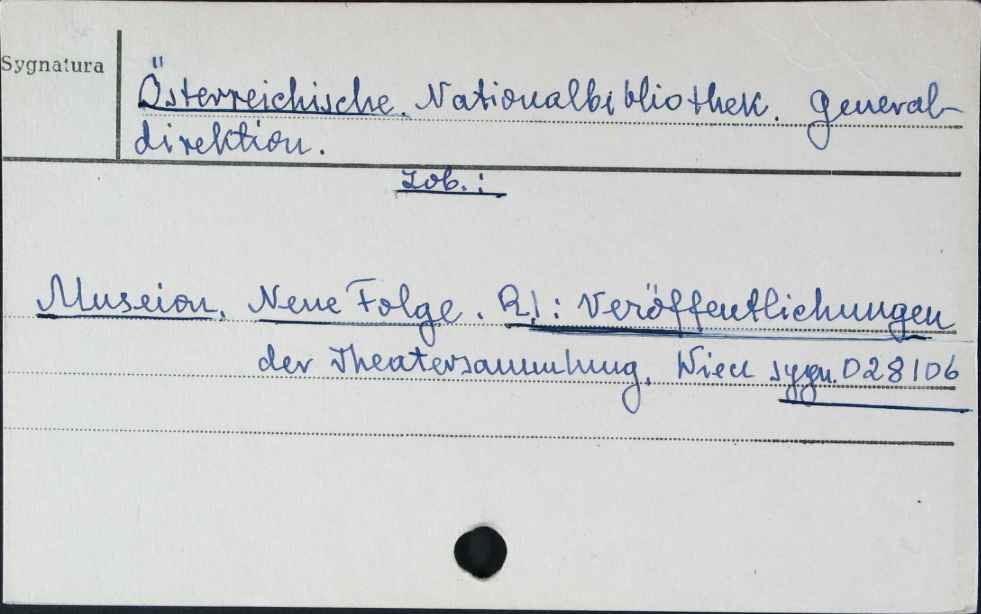 Sygnatura
Österreichische Nationalbibliothek. General-
direktion.
Zob.:
Museion. Neue Folge. R.1: Veröffentlichungen
der Theatersammlung. Wien sygn. D28106